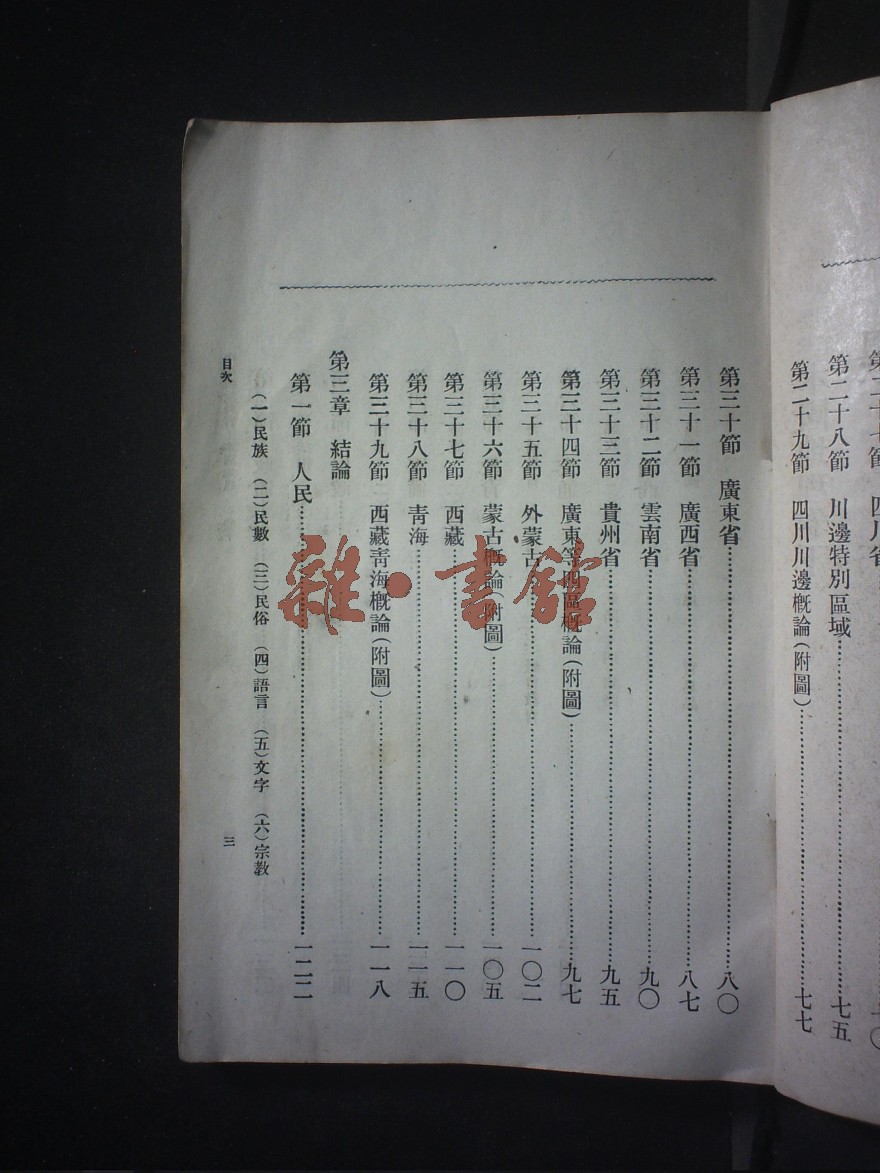 第二十七節 四川省
第二十八節 川邊特別區域……七五
第二十九節 四川川邊槪論(附圖)……七七
第三十節 廣東省……八〇
第三十一節 廣西省……八七
第三十二節 雲南省……九〇
第三十三節 貴州省……九五
第三十四節 廣東等四區槪論(附圖)……九七
第三十五節 外蒙古……一〇二
第三十六節 蒙古槪論(附圖)……一〇五
第三十七節 西藏……一一〇
第三十八節 靑海……一一五
第三十九節 西藏靑海槪論(附圖)……一一八
第三章 結論
第一節 人民……一二二
(一)民族 (二)民數 (三)民俗 (四)語言 (五)文字 (六)宗敎
目次
三
雜·書館